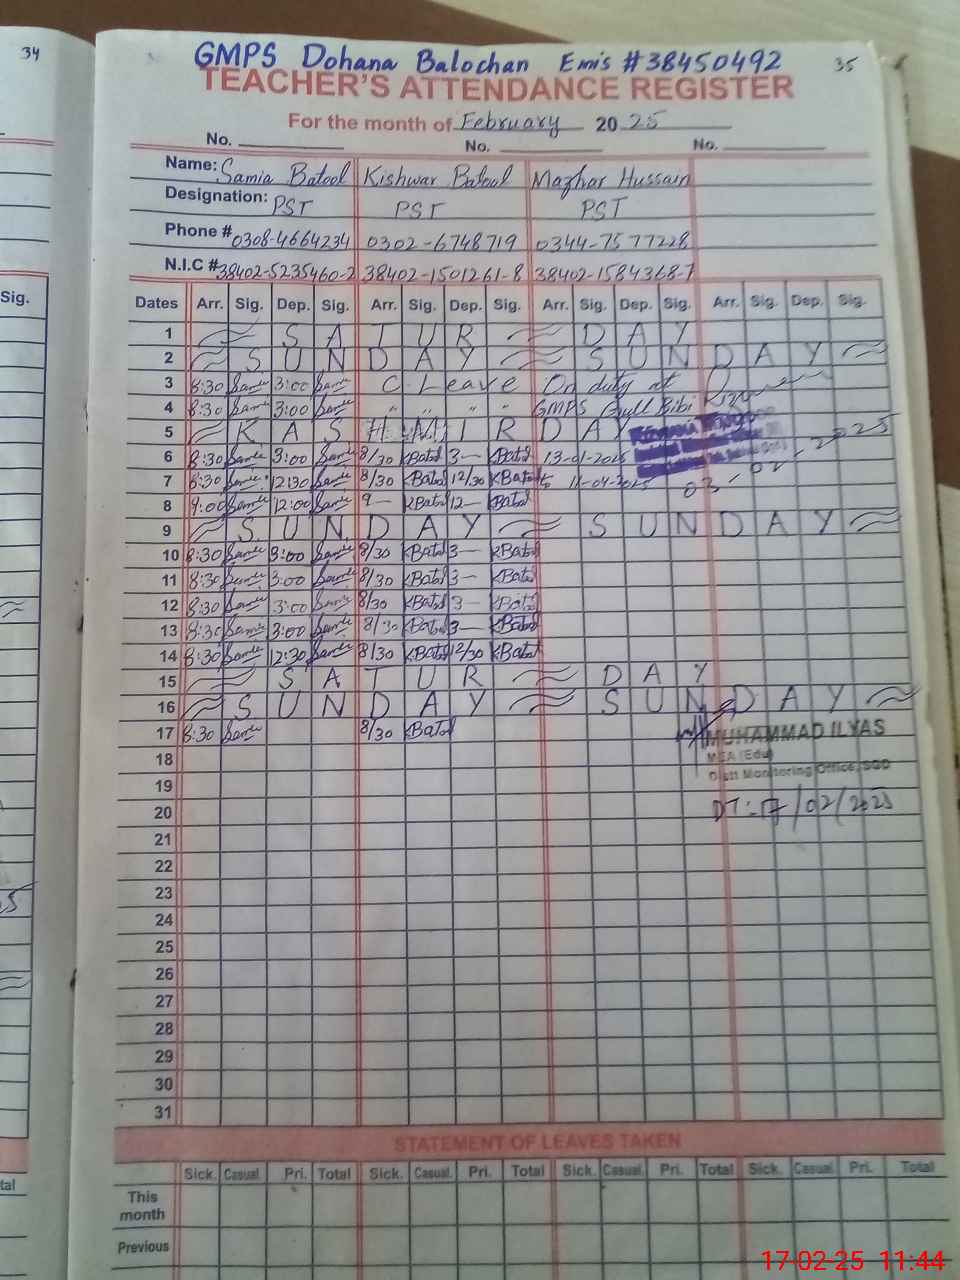 34
GMPS Dohana Balochan Emis #38450492 35
TEACHER'S ATTENDANCE REGISTER
For the month of February 2025
No. No. No.
Name: Samia Batool Kishwar Batool Mazhar Hussain
Designation: PST PST PST
Phone # 0308-4664234 0302-6748719 0344-7577228
N.I.C # 38402-5235460-2 38402-1501261-8 38402-1584368-7
Sig. Dates Arr. Sig. Dep. Sig. Arr. Sig. Dep. Sig. Arr. Sig. Dep. Sig. Arr. Sig. Dep. Sig.
1 SATUR DAY
2 SUNDAY SUNDAY
3 8:30 Samia 3:00 Samia C Leave On duty at
4 8:30 Samia 3:00 Samia " " " " GMPS Gull Bibi
5 KASHMIR DAY
6 8:30 Samia 3:00 Samia 8/30 KBatol 3— KBatol 13-01-2025
7 8:30 Samia 12:30 Samia 8/30 KBatol 12/30 KBatol to 11-04-2025 03-02-2025
8 9:00 Samia 12:00 Samia 9— KBatol 12— KBatol
9 SUNDAY SUNDAY
10 8:30 Samia 3:00 Samia 8/30 KBatol 3— KBatol
11 8:30 Samia 3:00 Samia 8/30 KBatol 3— KBatol
12 8:30 Samia 3:00 Samia 8/30 KBatol 3— KBatol
13 8:30 Samia 3:00 Samia 8/30 KBatol 3— KBatol
14 8:30 Samia 12:30 Samia 8/30 KBatol 12/30 KBatol
15 SATUR DAY
16 SUNDAY SUNDAY
17 8:30 Samia 8/30 KBatol MUHAMMAD ILYAS
18 MEA (Edu)
Distt Monitoring Office, SGD
19
20 DT:-17/02/2025
21
22
23
24
25
26
27
28
29
30
31
STATEMENT OF LEAVES TAKEN
tal Sick. Casual. Pri. Total Sick. Casual. Pri. Total Sick. Casual. Pri. Total Sick. Casual. Pri. Total
This month
Previous
17-02-25 11:44